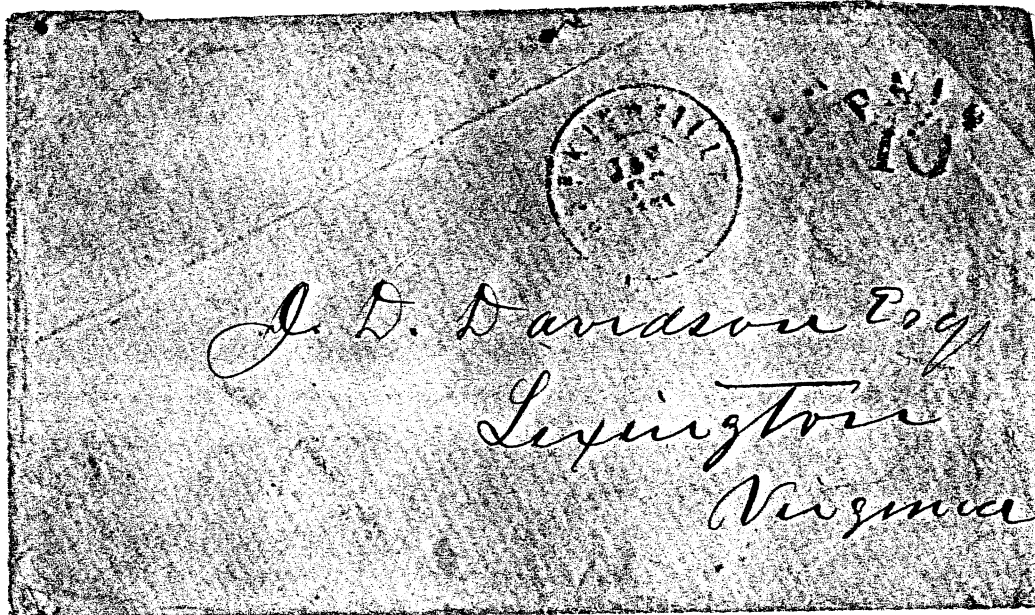 PAID
10
J. D. Davidson Esq
Lexington
Virginia